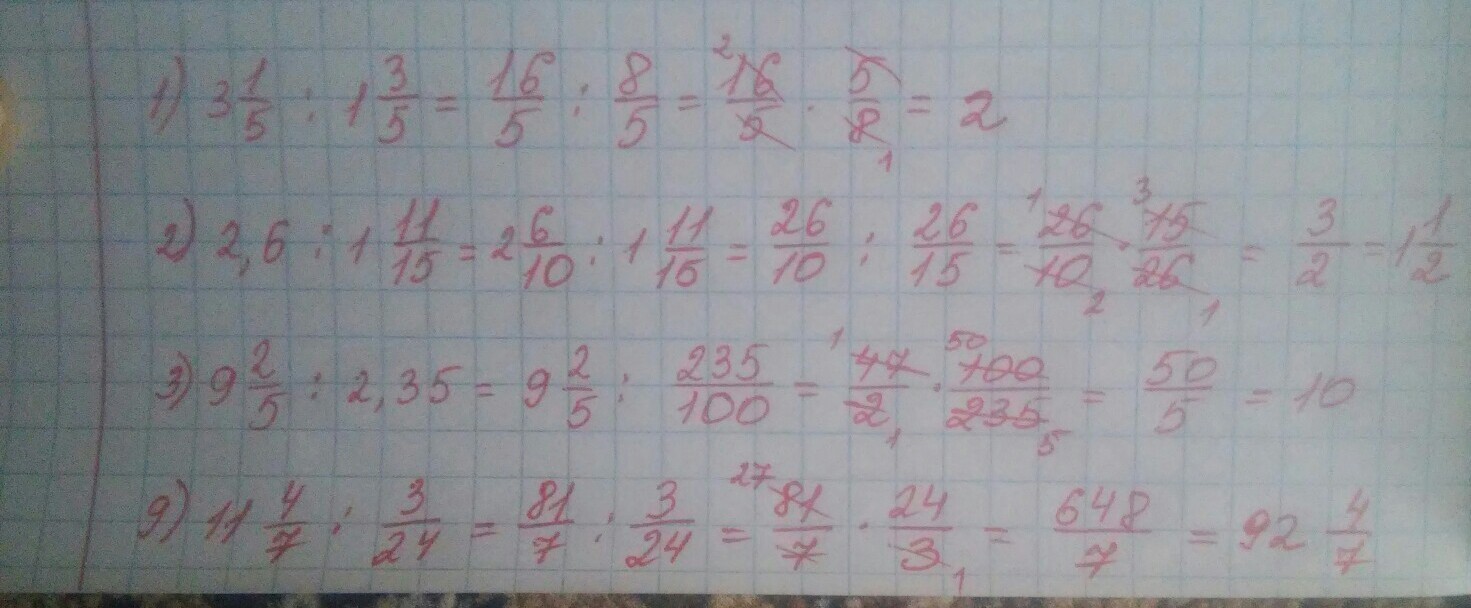 1) 3 1/5 : 1 3/5 = 16/5 : 8/5 = 2 16/5 · 5/8 1 = 2
2) 2,6 : 1 11/15 = 2 6/10 : 1 11/15 = 26/10 : 26/15 = 1 26/10 2 · 3 15/26 1 = 3/2 = 1 1/2
3) 9 2/5 : 2,35 = 9 2/5 : 235/100 = 1 47/2 1 · 50 100/235 5 = 50/5 = 10
9) 11 4/7 : 3/24 = 81/7 : 3/24 = 27 81/7 · 24/3 1 = 648/7 = 92 4/7